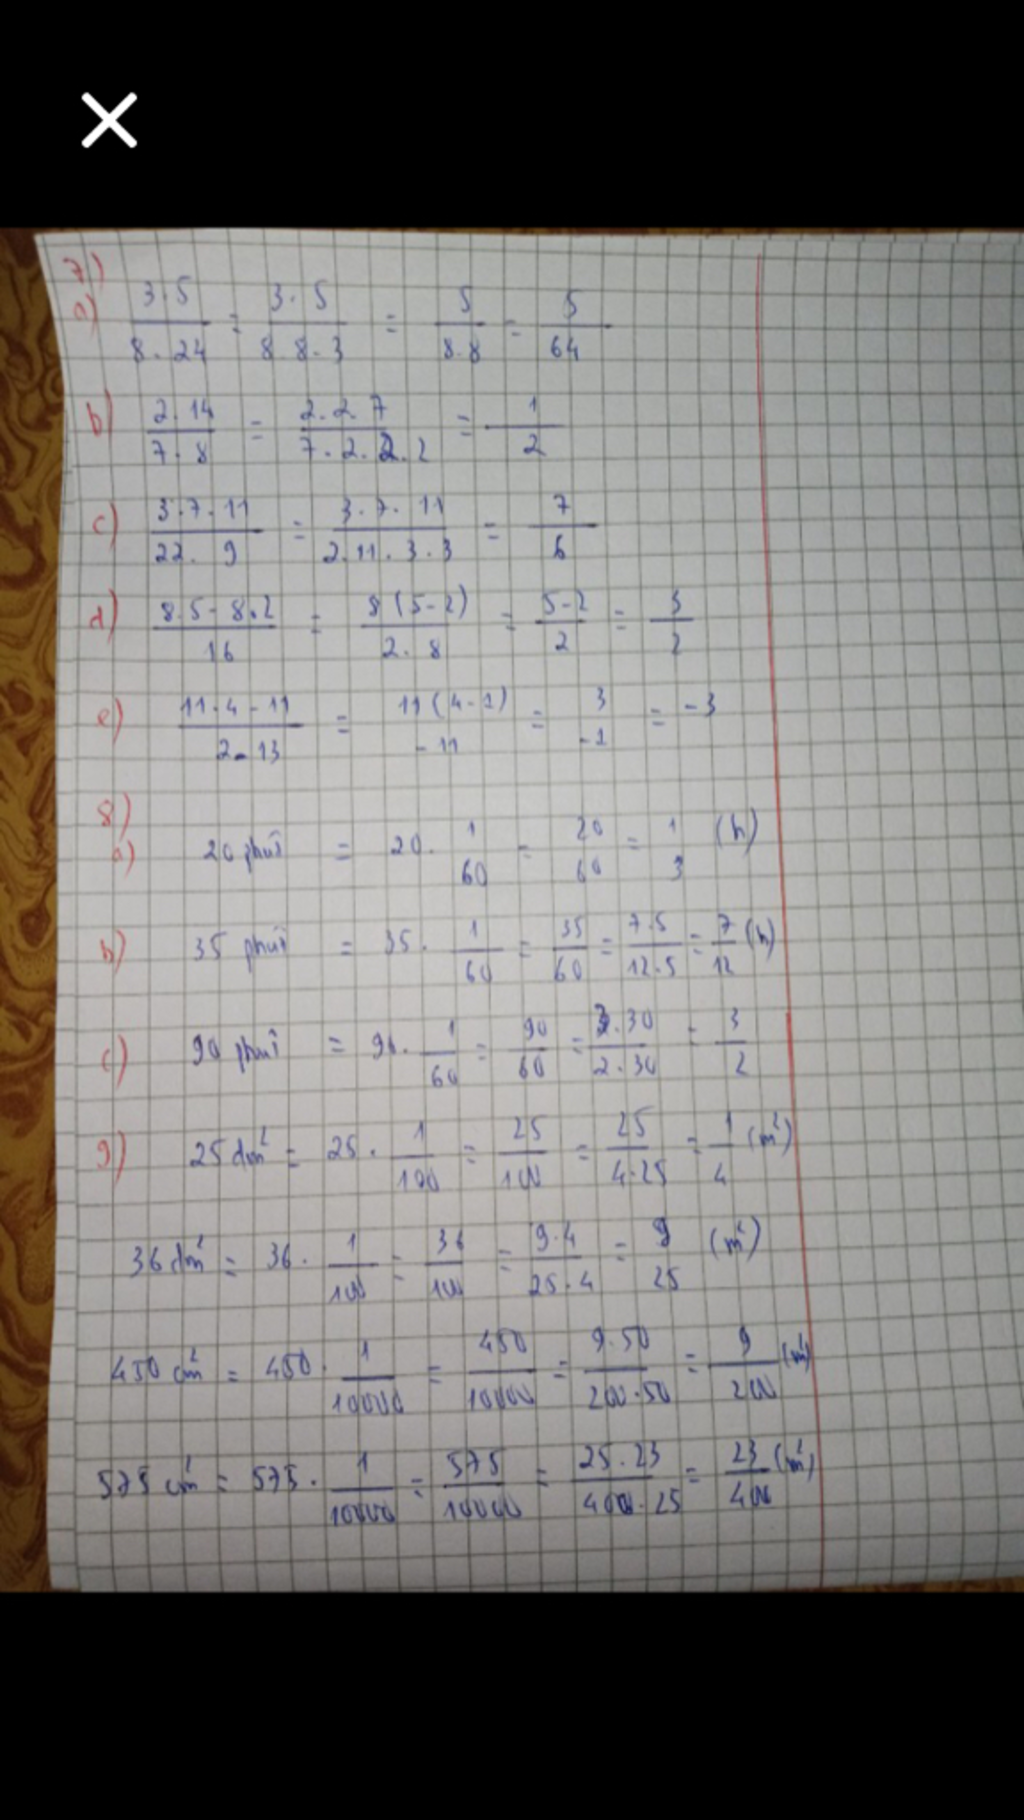 7)
a) 3.5/8.24 = 3.5/8.8.3 = 5/8.8 = 5/64
b) 2.14/7.8 = 2.2.7/7.2.2.2 = 1/2
c) 3.7.11/22.9 = 3.7.11/2.11.3.3 = 7/6
d) 8.5-8.2/16 = 8(5-2)/2.8 = 5-2/2 = 3/2
e) 11.4-11/2-13 = 11(4-1)/-11 = 3/-1 = -3
8)
a) 20 phút = 20.1/60 = 20/60 = 1/3 (h)
b) 35 phút = 35.1/60 = 35/60 = 7.5/12.5 = 7/12 (h)
c) 90 phút = 90.1/60 = 90/60 = 3.30/2.30 = 3/2
9) 25 dm² = 25.1/100 = 25/100 = 25/4.25 = 1/4 (m²)
36 dm² = 36.1/100 = 36/100 = 9.4/25.4 = 9/25 (m²)
450 cm² = 450.1/10000 = 450/10000 = 9.50/200.50 = 9/200 (m²)
575 cm² = 575.1/10000 = 575/10000 = 25.23/400.25 = 23/400 (m²)